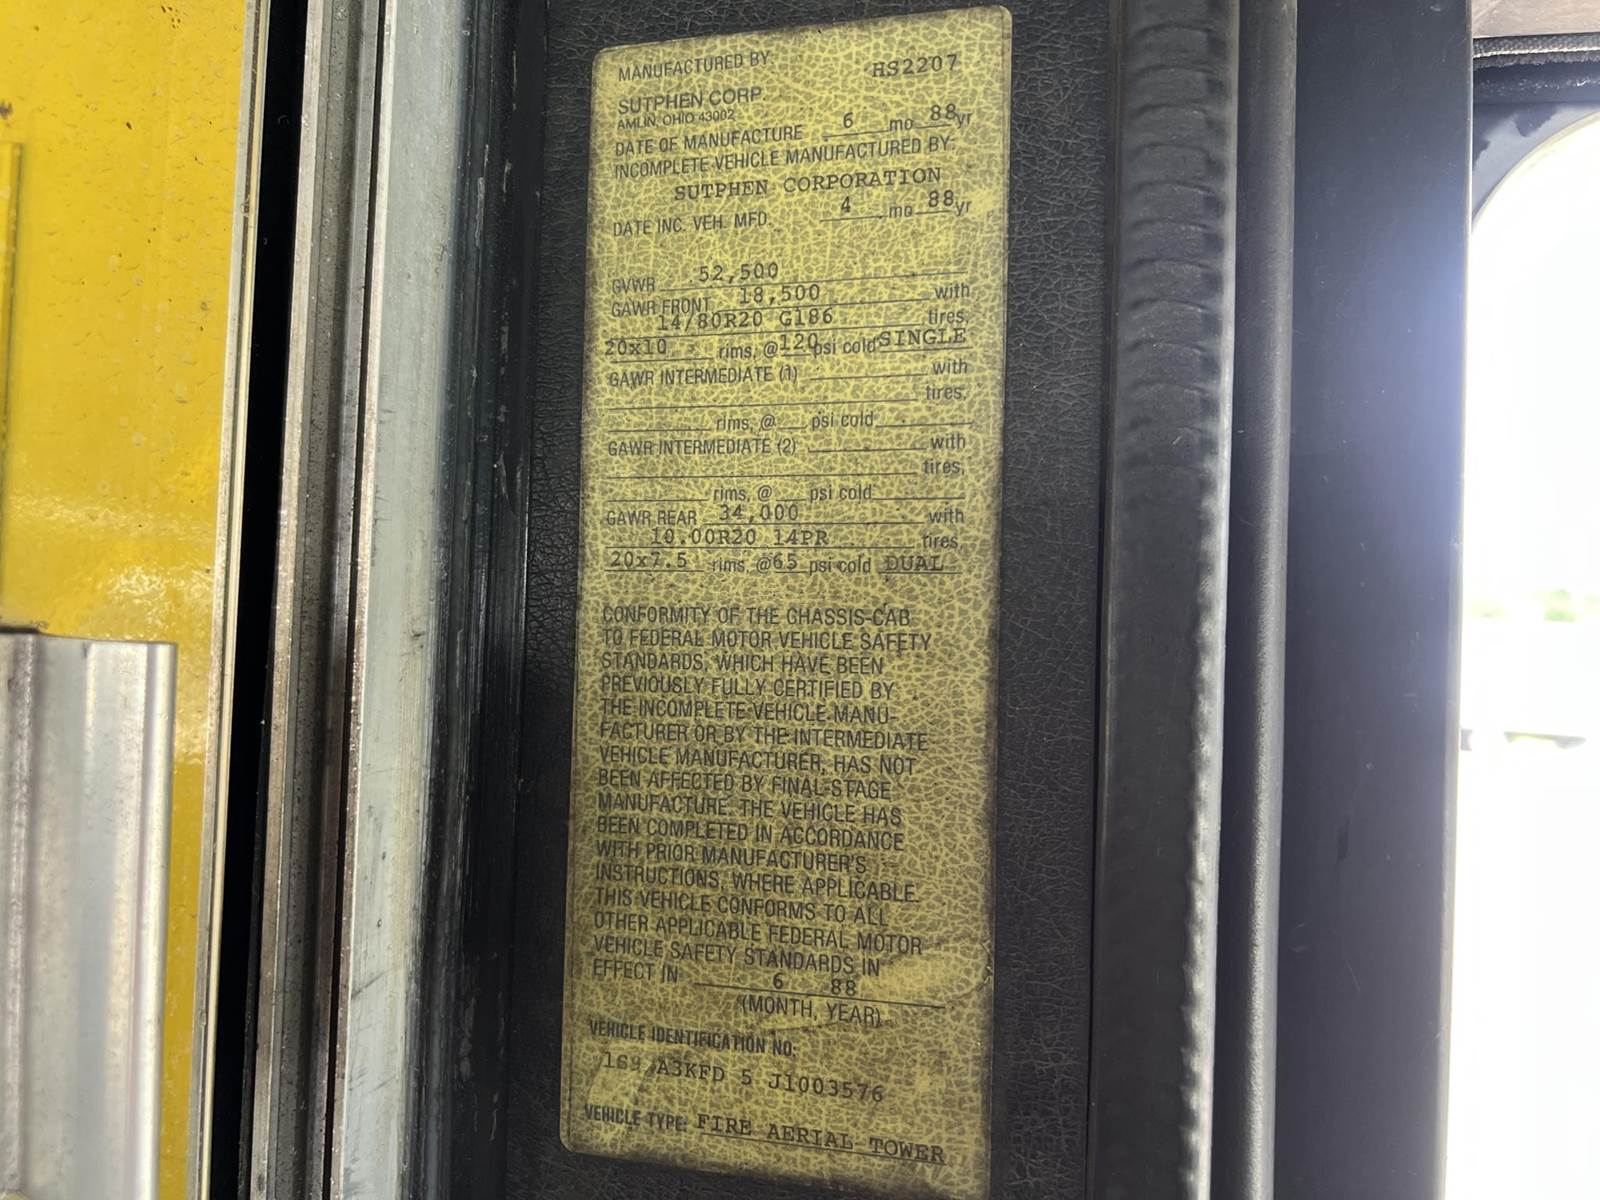 MANUFACTURED BY: HS2207
SUTPHEN CORP.
AMLIN, OHIO 43002
DATE OF MANUFACTURE 6 mo 88 yr
INCOMPLETE VEHICLE MANUFACTURED BY:
SUTPHEN CORPORATION
DATE INC. VEH. MFD. 4 mo 88 yr
GVWR 52,500
GAWR FRONT 18,500 with
14/80R20 G186 tires,
20x10 rims, @ 120 psi cold SINGLE
GAWR INTERMEDIATE (1) with
tires,
rims, @ psi cold
GAWR INTERMEDIATE (2) with
tires,
rims, @ psi cold
GAWR REAR 34,000 with
10.00R20 14PR tires,
20x7.5 rims, @ 65 psi cold DUAL
CONFORMITY OF THE CHASSIS-CAB
TO FEDERAL MOTOR VEHICLE SAFETY
STANDARDS, WHICH HAVE BEEN
PREVIOUSLY FULLY CERTIFIED BY
THE INCOMPLETE VEHICLE MANU-
FACTURER OR BY THE INTERMEDIATE
VEHICLE MANUFACTURER, HAS NOT
BEEN AFFECTED BY FINAL-STAGE
MANUFACTURE. THE VEHICLE HAS
BEEN COMPLETED IN ACCORDANCE
WITH PRIOR MANUFACTURER'S
INSTRUCTIONS, WHERE APPLICABLE.
THIS VEHICLE CONFORMS TO ALL
OTHER APPLICABLE FEDERAL MOTOR
VEHICLE SAFETY STANDARDS IN
EFFECT IN 6 88
(MONTH, YEAR)
VEHICLE IDENTIFICATION NO:
A3KFD 5 J1003576
VEHICLE TYPE: FIRE AERIAL TOWER